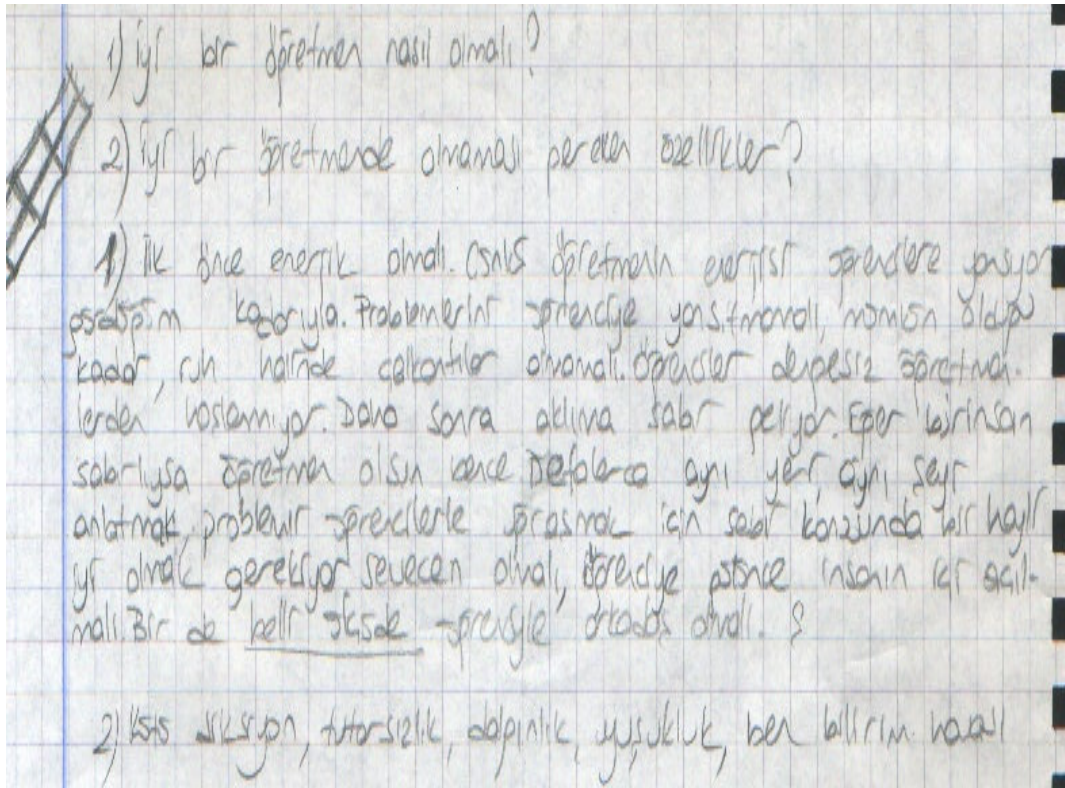 1) iyi bir öğretmen nasıl olmalı?
2) iyi bir öğretmende olmaması gereken özellikler?
1) ilk önce enerjik olmalı. Çünkü öğretmenin enerjisi öğrencilere yansıyor
gördüğüm kadarıyla. Problemlerini öğrenciye yansıtmamalı, mümkün olduğu
kadar, ruh halinde çalkantılar olmamalı. Öğrenciler dengesiz öğretmen-
lerden hoşlanmıyor. Daha sonra aklıma sabır geliyor. Eğer bir insan
sabırlıysa öğretmen olsun bence Defalarca aynı yeri, aynı şeyi
anlatmak, problemli öğrencilerle uğraşmak için sabır konusunda bir hayli
iyi olmak gerekiyor sevecen olmalı, öğrenciye insanın içi açıl-
malı. Bir de belli ölçüde öğrenciyle arkadaş olmalı.
2) Kötü diksiyon, tutarsızlık, dalgınlık, uyuşukluk, ben bilirim havası